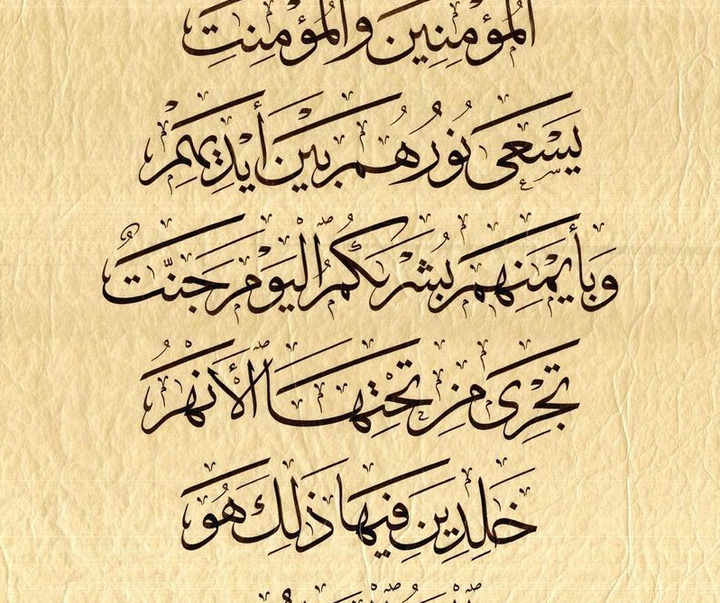 المؤمنين والمؤمنت
يسعى نورهم بين أيديهم
وبأيمنهم بشرىكم اليوم جنت
تجرى من تحتها الأنهر
خلدين فيها ذلك هو